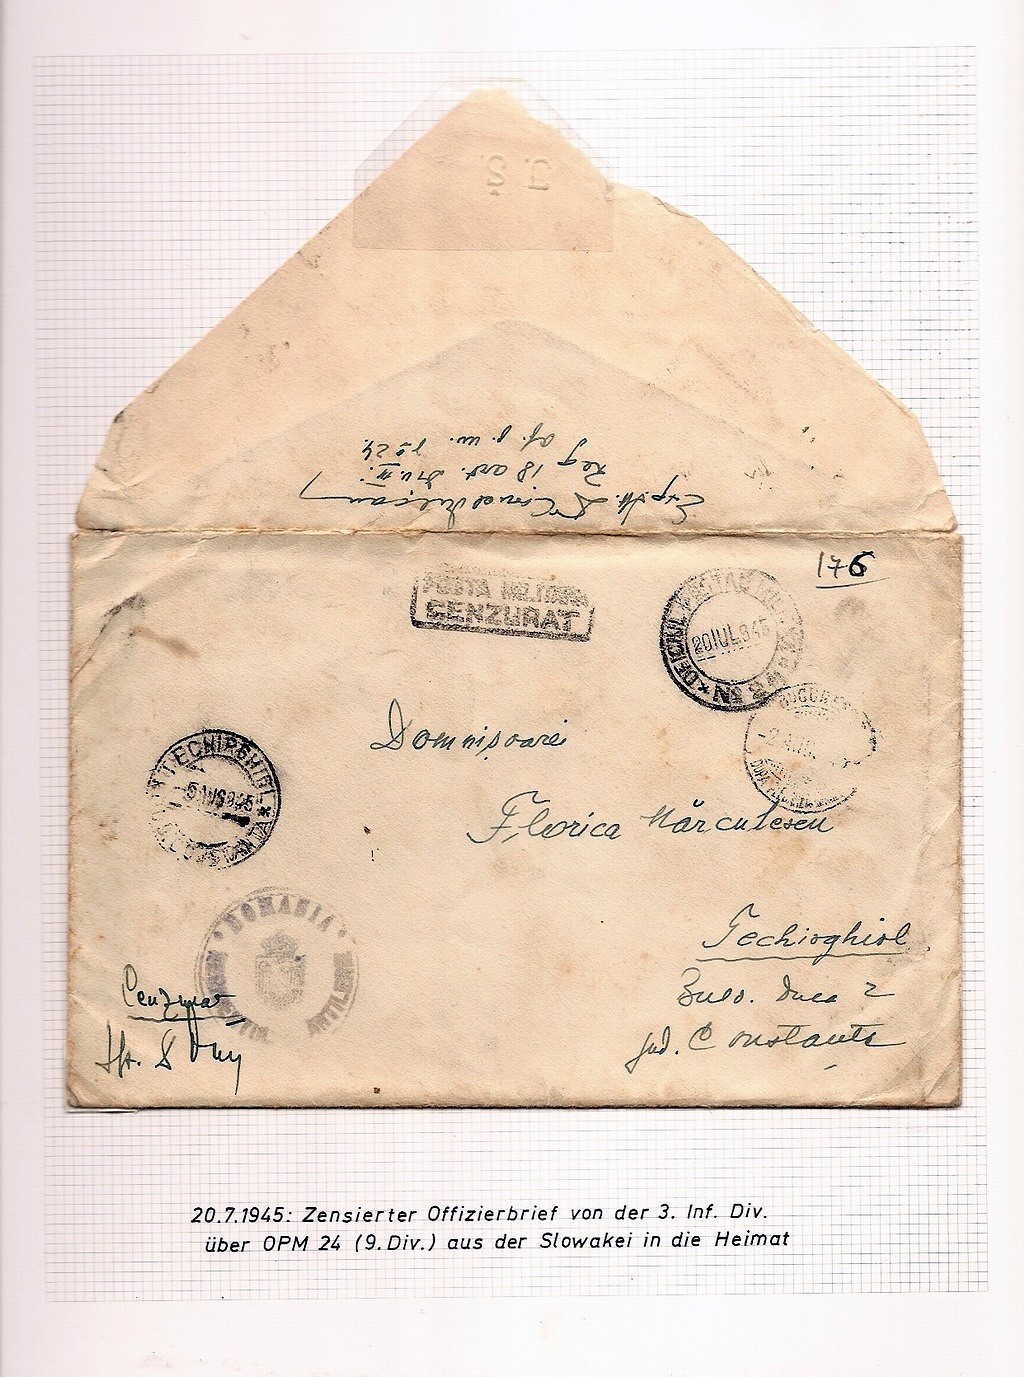 J. S.
Reg 18 art.
of. p. m. No 24
176
POSTA MILITARA
CENZURAT
OFICIUL POSTAL MILITAR
20 IUL 945
BUCUREȘTI
-2 AUG
Domnișoarei
TECHIRGHIOL
-5 AUG 945
CONSTANTA
Florica Mărculescu
ROMANIA
Techirghiol
Cenzurat
Bulv. Duca 2
jud. Constanta
20.7.1945: Zensierter Offizierbrief von der 3. Inf. Div.
über OPM 24 (9. Div.) aus der Slowakei in die Heimat